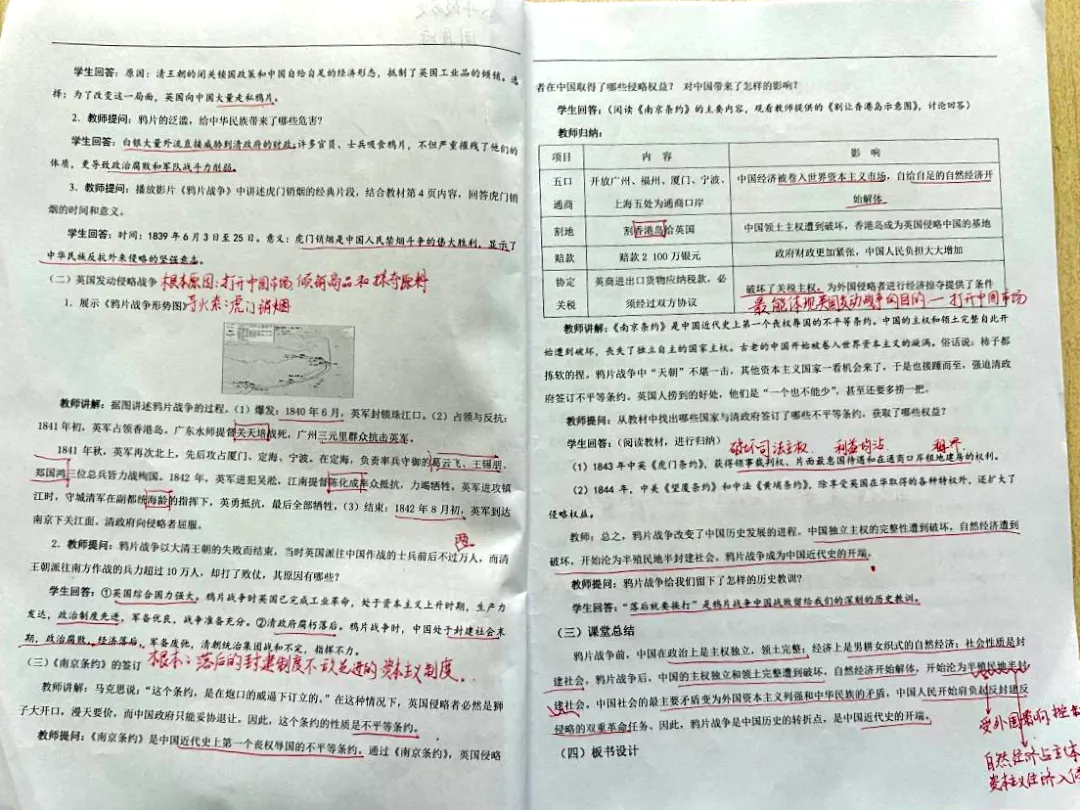 学生回答：原因：清王朝的闭关锁国政策和中国自给自足的经济形态，抵制了英国工业品的倾销。选
择：为了改变这一局面，英国向中国大量走私鸦片。
2．教师提问：鸦片的泛滥，给中华民族带来了哪些危害？
学生回答：白银大量外流直接威胁到清政府的财政，许多官员、士兵吸食鸦片，不但严重摧残了他们的
体质，更导致政治腐败和军队战斗力削弱。
3．教师提问：播放影片《鸦片战争》中讲述虎门销烟的经典片段，结合教材第4页内容，回答虎门销
烟的时间和意义。
学生回答：时间：1839年6月3日至25日。意义：虎门销烟是中国人民禁烟斗争的伟大胜利，显示了
中华民族反抗外来侵略的坚强意志。
（二）英国发动侵略战争 根本原因：打开中国市场 倾销商品和掠夺原料
1．展示《鸦片战争形势图》导火索：虎门销烟
教师讲解：据图讲述鸦片战争的过程。（1）爆发：1840年6月，英军封锁珠江口。（2）占领与反抗：
1841年初，英军占领香港岛。广东水师提督关天培战死，广州三元里群众抗击英军。
1841年秋，英军再次北上，先后攻占厦门、定海、宁波。在定海，负责率兵守御的葛云飞、王锡朋、
郑国鸿三位总兵皆力战殉国。1842年，英军进犯吴淞，江南提督陈化成率众抵抗，力竭牺牲。英军进攻镇
江时，守城清军在副都统海龄的指挥下，英勇抵抗，最后全部牺牲。（3）结束：1842年8月初，英军到达
南京下关江面，清政府向侵略者屈服。
两
2．教师提问：鸦片战争以大清王朝的失败而结束，当时英国派往中国作战的士兵前后不过万人，而清
王朝派往南方作战的兵力超过10万人，却打了败仗，其原因有哪些？
学生回答：①英国综合国力强大。鸦片战争时英国已完成工业革命，处于资本主义上升时期，生产力
发达，政治制度先进，军备优良，战争准备充分。②清政府腐朽落后。鸦片战争时，中国处于封建社会末
期，政治腐败，经济落后，军备废弛，清朝统治集团战和不定，指挥不力。
（三）《南京条约》的签订 根本：落后的封建制度不敌先进的资本主义制度．
教师讲解：马克思说：“这个条约，是在炮口的威逼下订立的。”在这种情况下，英国侵略者必然是狮
子大开口，漫天要价，而中国政府只能妥协退让。因此，这个条约的性质是不平等条约。
教师提问：《南京条约》是中国近代史上第一个丧权辱国的不平等条约。通过《南京条约》，英国侵略
者在中国取得了哪些侵略权益？对中国带来了怎样的影响？
学生回答：（阅读《南京条约》的主要内容，观看教师提供的《割让香港岛示意图》，讨论回答）
教师归纳：
项目 内容 影响
五口 开放广州、福州、厦门、宁波、 中国经济被卷入世界资本主义市场，自给自足的自然经济开
通商 上海五处为通商口岸 始解体
割地 割香港岛给英国 中国领土主权遭到破坏，香港岛成为英国侵略中国的基地
赔款 赔款2 100万银元 政府财政更加紧张，中国人民负担大大增加
协定 英商进出口货物应纳税款，必 破坏了关税主权，为外国侵略者进行经济掠夺提供了条件
关税 须经过双方协议 最能体现英国发动战争的目的一打开中国市场
教师讲解：《南京条约》是中国近代史上第一个丧权辱国的不平等条约。中国的主权和领土完整自此开
始遭到破坏，丧失了独立自主的国家主权。古老的中国开始被卷入世界资本主义的漩涡。俗话说：柿子都
拣软的捏。鸦片战争中“天朝”不堪一击，其他资本主义国家一看机会来了，于是也接踵而至，强迫清政
府签订不平等条约。英国人捞到的好处，他们是“一个也不能少”，甚至还要多捞一把。
教师提问：从教材中找出哪些国家与清政府签订了哪些不平等条约，获取了哪些权益？
学生回答：（阅读教材，进行归纳） 破坏司法主权 利益均沾 租界
（1）1843年中英《虎门条约》，获得领事裁判权、片面最惠国待遇和在通商口岸租地建房的权利。
（2）1844年，中美《望厦条约》和中法《黄埔条约》，除享受英国在华取得的各种特权外，还扩大了
侵略权益。
教师：总之，鸦片战争改变了中国历史发展的进程，中国独立主权的完整性遭到破坏，自然经济遭到
破坏，开始沦为半殖民地半封建社会。鸦片战争成为中国近代史的开端。
教师提问：鸦片战争给我们留下了怎样的历史教训？
学生回答：“落后就要挨打”是鸦片战争中国战败留给我们的深刻的历史教训。
（三）课堂总结
鸦片战争前，中国在政治上是主权独立，领土完整；经济上是男耕女织式的自然经济；社会性质是封
建社会。鸦片战争后，中国的主权独立和领土完整遭到破坏，自然经济开始解体，开始沦为半殖民地半封
建社会，中国社会的最主要矛盾变为外国资本主义列强和中华民族的矛盾，中国人民开始肩负起反封建反
侵略的双重革命任务。因此，鸦片战争是中国历史的转折点，是中国近代史的开端。
（四）板书设计
受外国影响
自然经济占主体
资本主义经济入侵